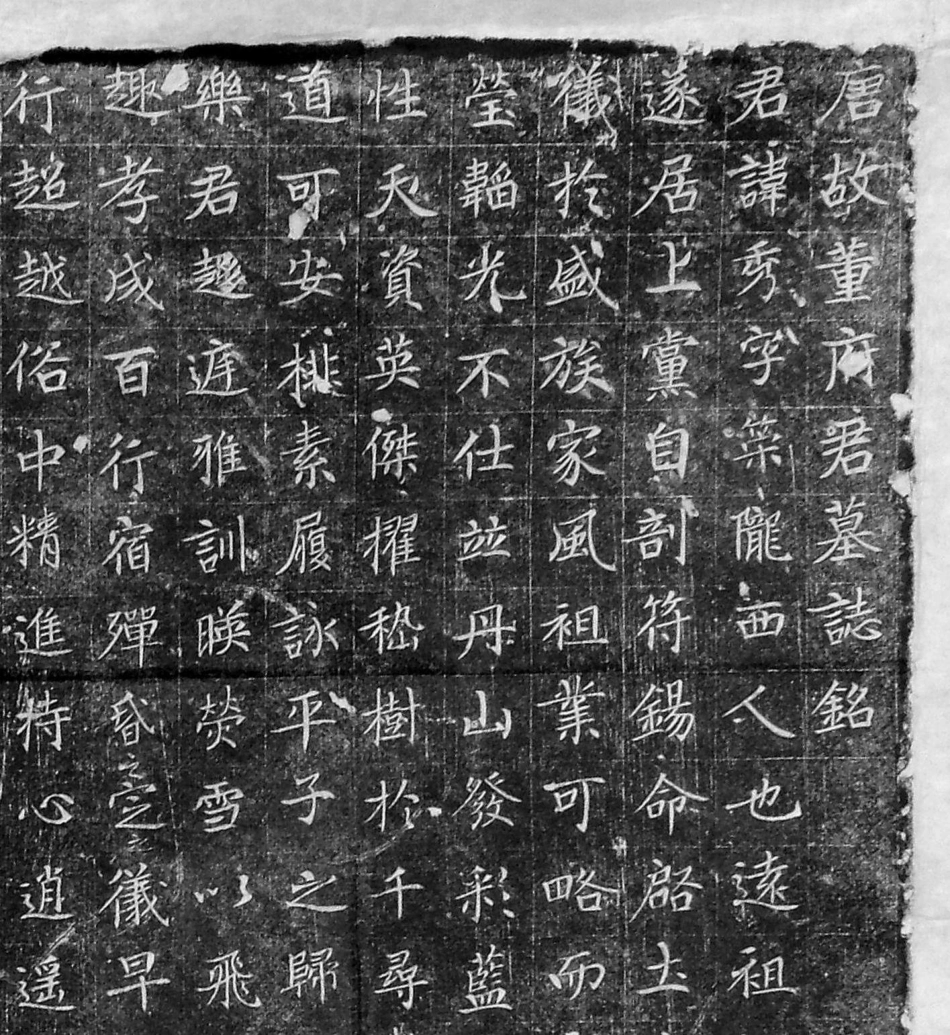 唐故董府君墓誌銘
君諱秀字隴西人也遠祖
遂居上黨自剖符錫命啓土
儀於盛族家風祖業可略而
瑩韜光不仕並丹山發彩藍
性天資英傑擢嵇樹於千尋
道可安排素履詠平子之歸
樂君趍庭雅訓暎熒雪以飛
趣孝成百行宿殫昏之定之儀早
行超越俗中精進持心逍遥